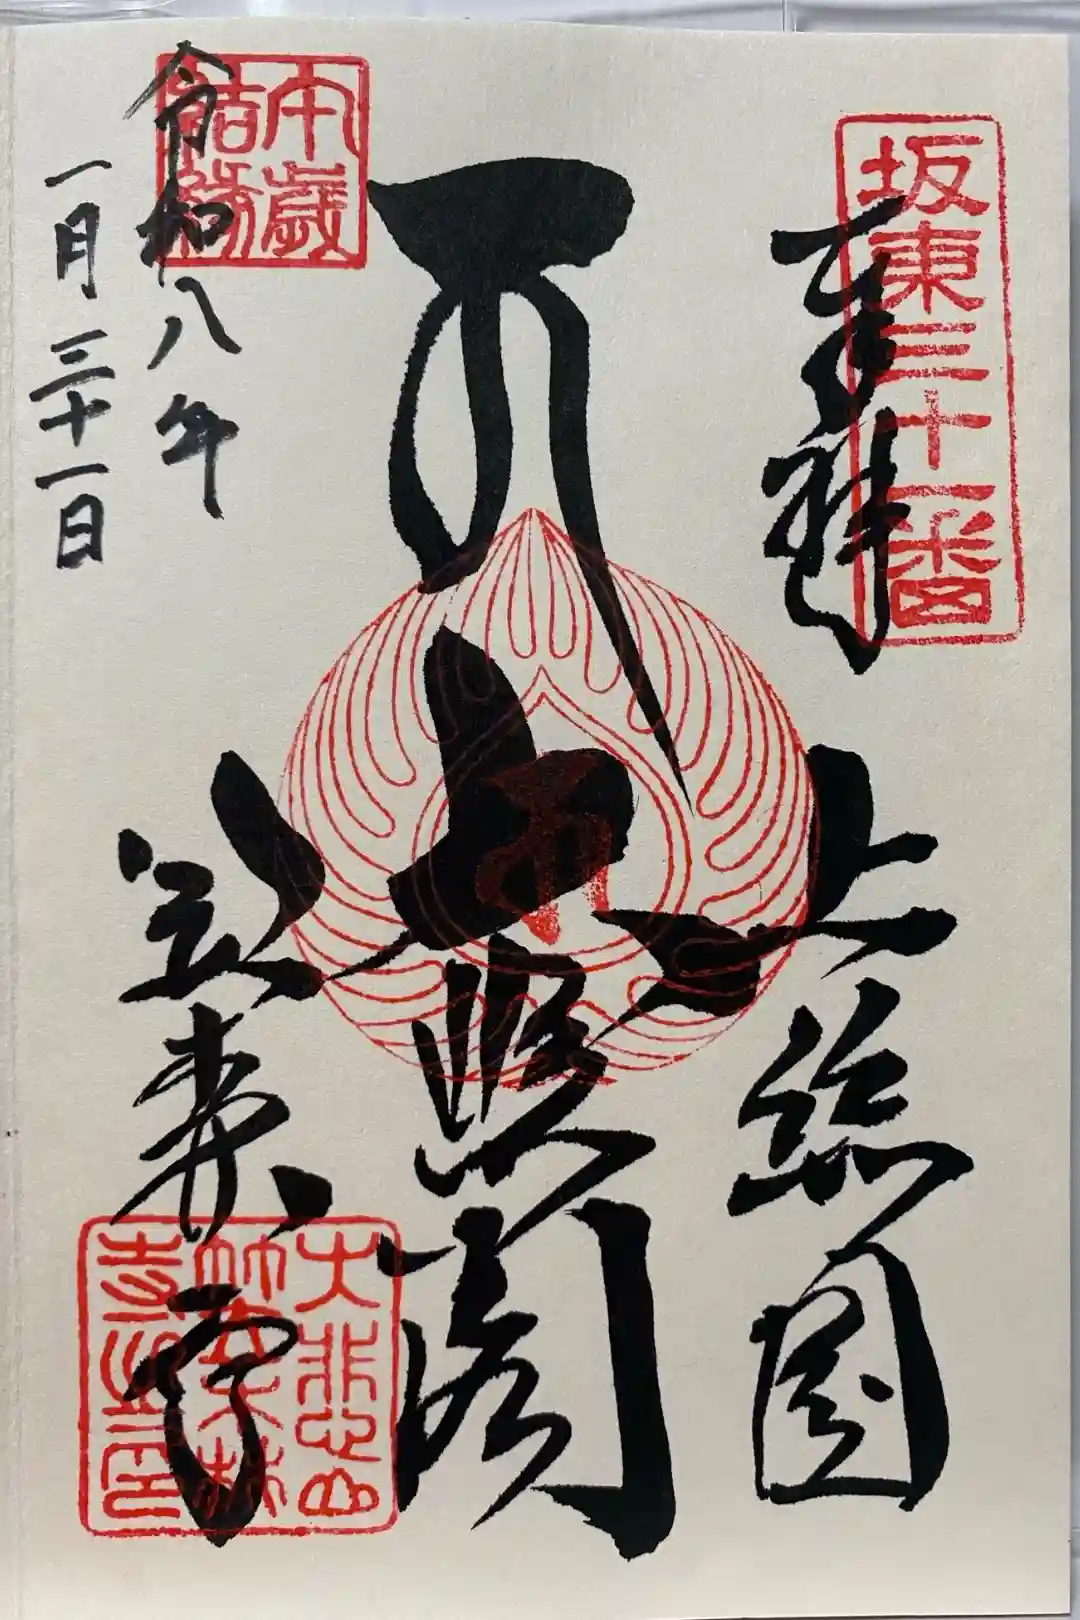 坂東三十一番
奉拝
上総国
大悲閣
笠森寺
午歳
結縁
令和八年
一月三十一日
大悲山
笠森
寺之印